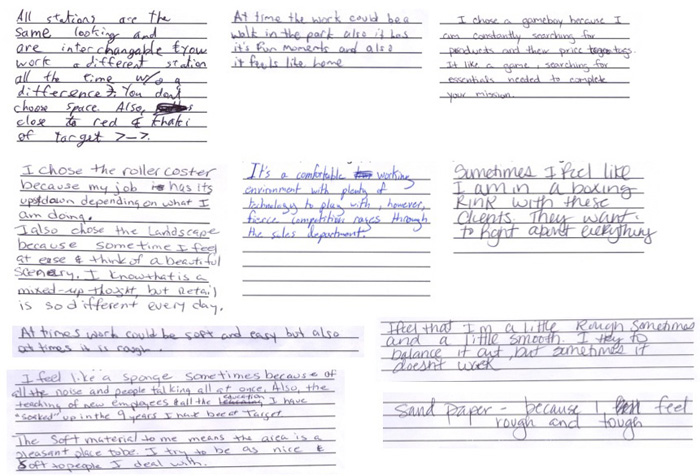 All stations are the
same looking and
are interchangable &you
work a different station
all the time w/o a
difference. You don't
choose space. Also,
close to red & khaki
of Target >->.
At time the work could be a
walk in the park also it has
it's fun moments and also
it feels like home
I chose a gameboy because I
am constantly searching for
products and their price tags.
It like a game, searching for
essentials needed to complete
your mission.
I chose the roller coster
because my job has its
ups&down depending on what I
am doing.
I also chose the Landscape
because sometime I feel
at ease & think of a beautiful
scenery. I know that is a
mixed-up thoght, but Retail
is so different every day.
It's a comfortable working
environment with plenty of
technology to play with, however,
fierce competition rages through
the sales department.
Sometimes I feel like
I am in a boxing
Rink with these
Clients. They want
to fight about everything
At times work could be soft and easy but also
at times it is rough.
I feel that I'm a little Rough sometimes
and a little smooth. I try to
balance it out, but sometimes it
doesnt work
I feel like a sponge sometimes because of
all the noise and people talking all at once. Also, the
teaching of new employees & all the education I have
"soaked" up in the 9 years I have been at Target.
The soft material to me means the area is a
pleasant place to be. I try to be as nice &
soft to people I deal with.
Sand paper - because I feel
rough and tough